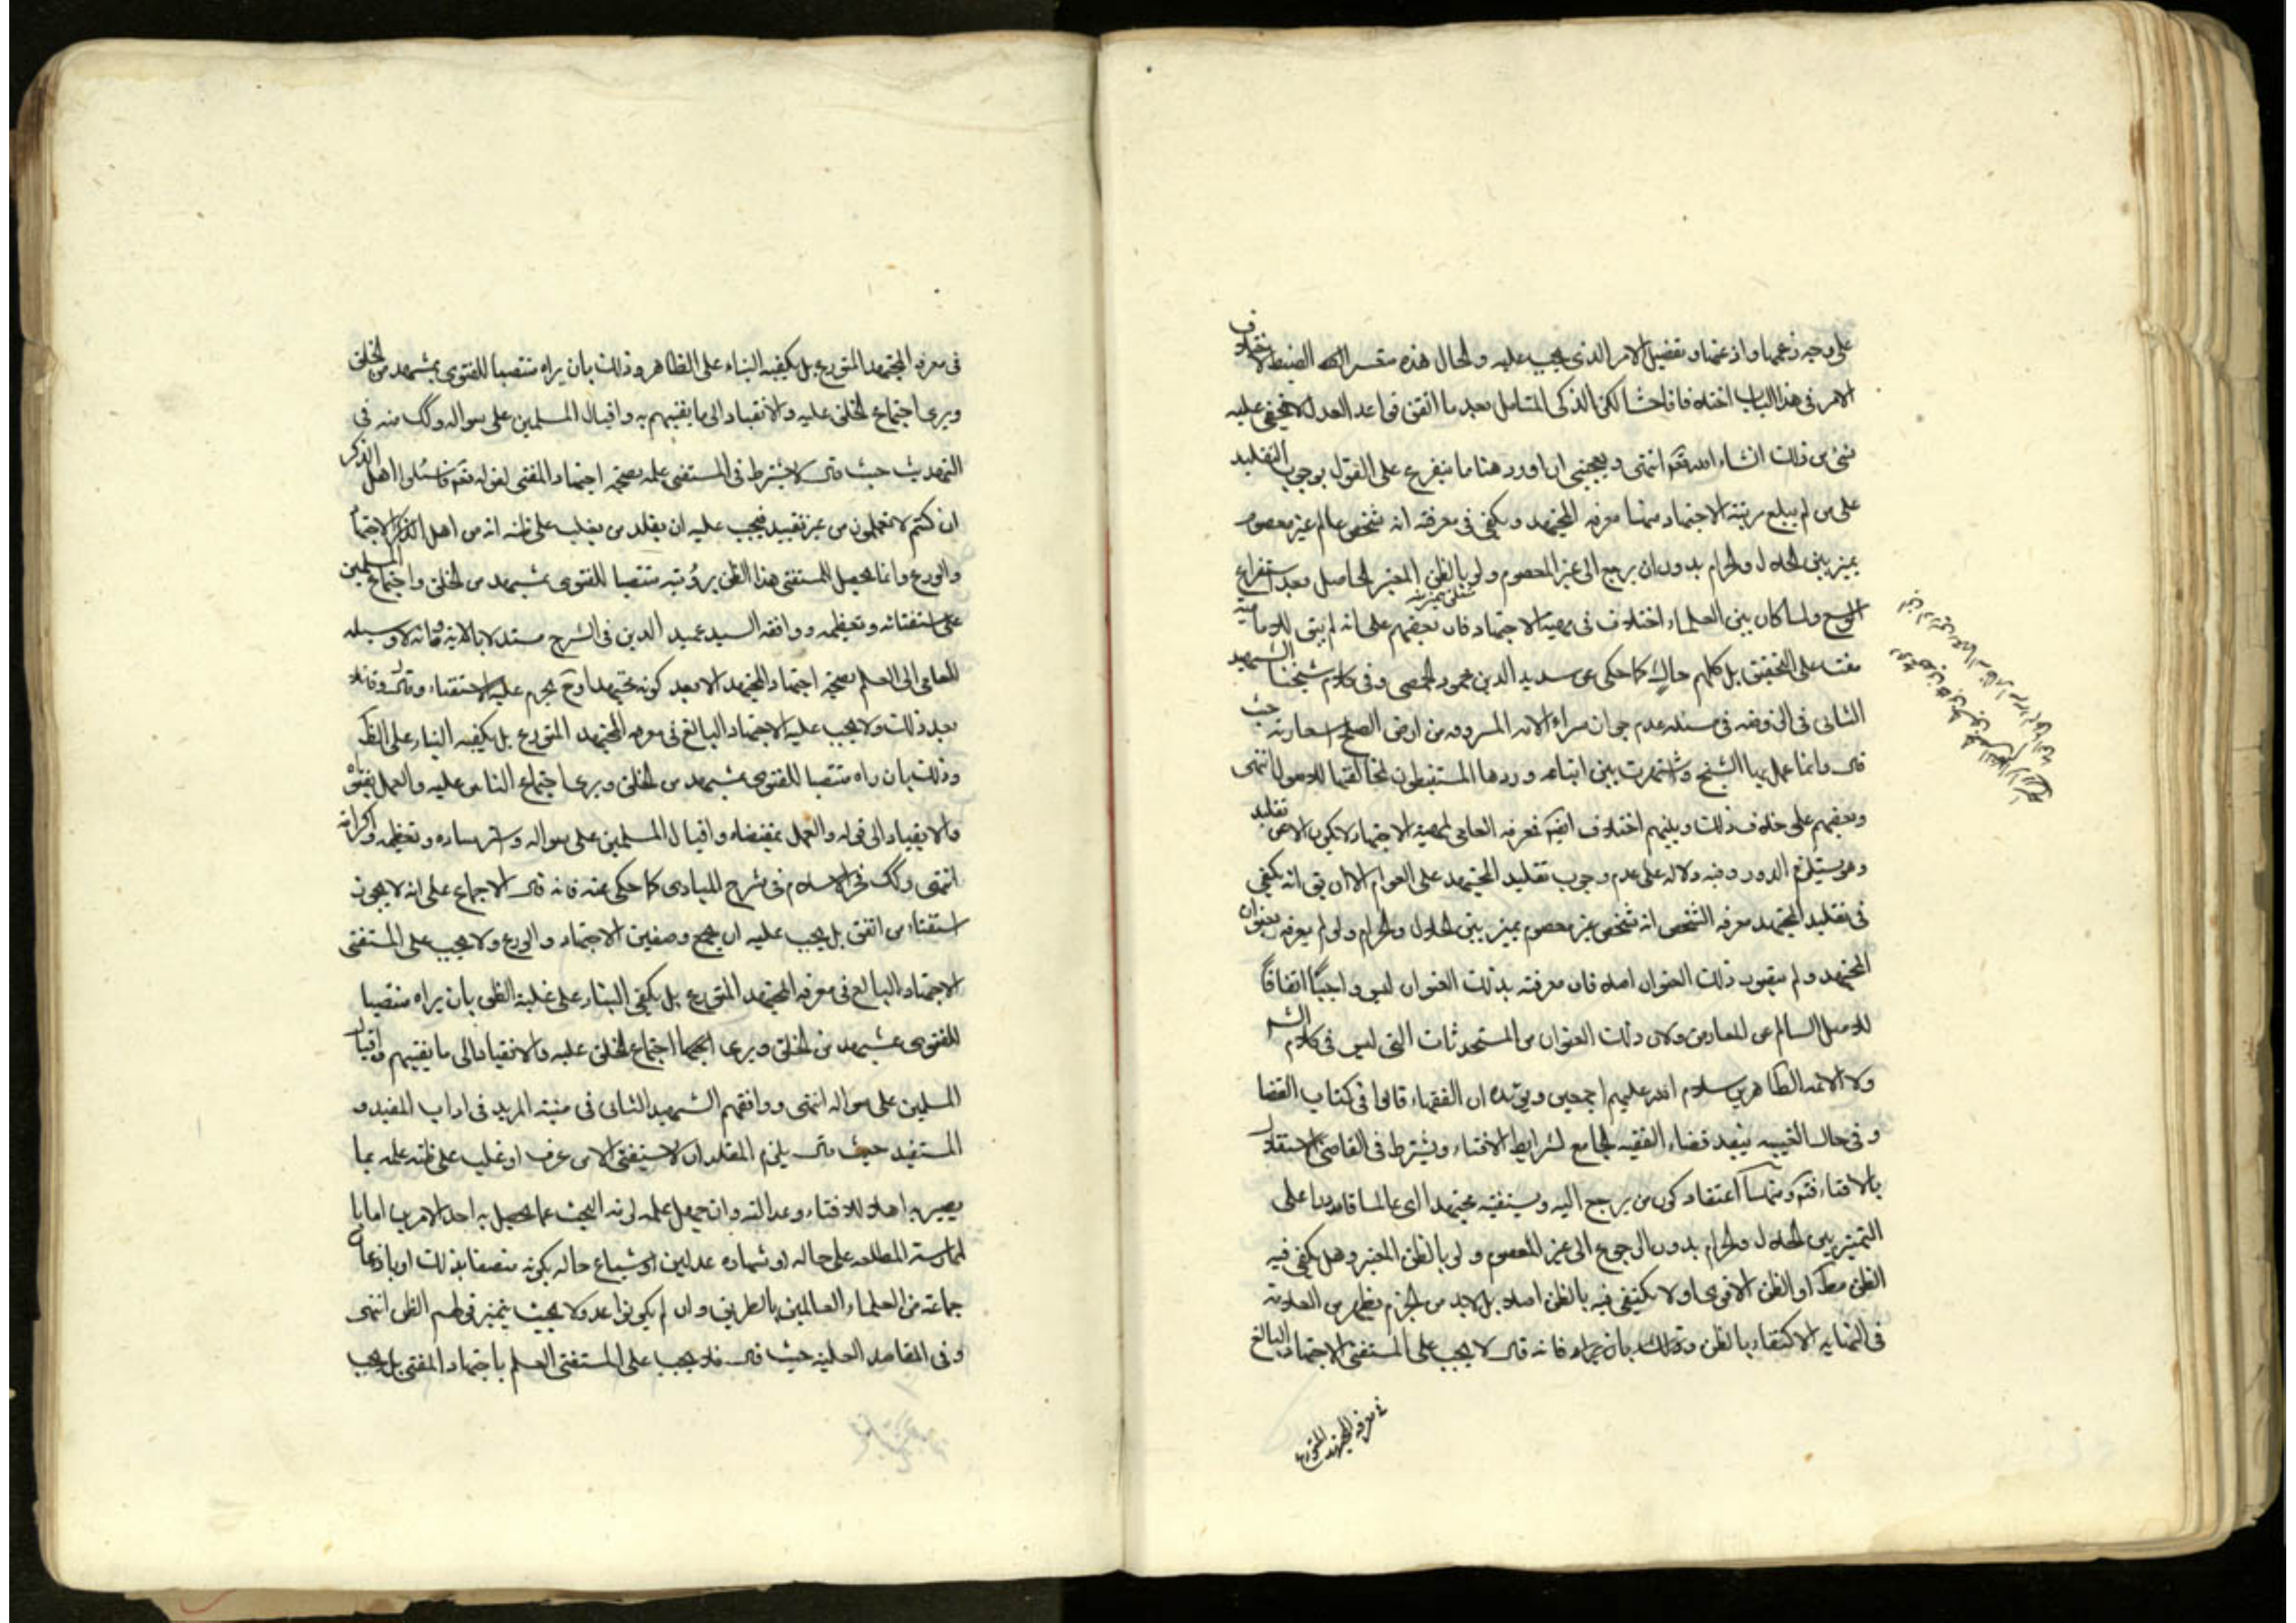 على وجه زعمها واذعنها وتفصيل الامر الذى يجب عليه والحال هذه الضبط لاختلاف
الامر فى هذا الباب اختلافا فاحشا لكن الذكى المتامل بعد ما اتقن قواعد العدل لا يخفى عليه
شئ من ذلك انشاء الله تعالى انتهى ويعجبنى ان اورد هنا ما يتفرع على القول بوجوب التقليد
على من لم يبلغ مرتبة الاجتهاد منها معرفه المجتهد ويكفى فى معرفته انه شخص عالم غير معصوم
يميز بين الحلال والحرام بدون ان يرجع الى غير المعصوم ولو بالظن المعتبر الحاصل بعد استفراغ
الوسع ولما كان بين العلماء اختلاف فى مهية الاجتهاد فان بعضهم على انه لم يبق للامامية
مفت على التحقيق بل كلهم حاك كما حكى عن سديد الدين محمود الحمصى وفى كلام شيخنا الشهيد
الثانى فى الروضه فى مسئله عدم جواز شراء الامه المسروقه من ارض الصلح اشعار به حيث
قال وانما عمل بها الشيخ واشتهرت بين اتباعه وردها المستنبطون لمخالفتها للاصول انتهى
وبعضهم على خلاف ذلك وبينهم اختلاف ايضا فمعرفه العامى لمهية الاجتهاد لا يكون الا عن تقليد
وهو يستلزم الدور وفيه دلاله على عدم وجوب تقليد المجتهد على العوام الا ان يق انه يكفى
فى تقليد المجتهد معرفه الشخص انه شخص غير معصوم يميز بين الحلال والحرام ولو لم يعرفه بعنوان
المجتهد ولم يتصوب ذلك العنوان اصلا فان معرفته بذلك العنوان ليس واجبًا اتفاقًا
للاصل السالم عن المعارض ولان ذلك العنوان من المستحدثات التى ليس فى كلام الشه
ولا الائمه الطاهرين سلام الله عليهم اجمعين ويؤيده ان الفقهاء قالوا فى كتاب القضا
وفى حال الغيبه ينفذ قضاء الفقيه الجامع لشرايط الافتاء ويشترط فى القاضى استقلال
بالافتاء فتم ومنها اعتقاد كون من يرجع اليه ويستفتيه مجتهدا اى عالما قادرا على
التميز بين الحلال والحرام بدون الرجوع الى غير المعصوم ولو بالظن المعتبر وهل يكفى فيه
الظن مطلقا او الظن الاقوى او لا يكتفى فيه بالظن اصلا بل لا بد من الجزم يظهر من العلامة
فى النهايه الاكتفاء بالظن وذلك بان يراه فانه قال لا يجب على المستفتى الاجتهاد البالغ
فى معرفه المجتهد المتورع
فى معرفه المجتهد المتورع بل يكفيه البناء على الظاهر وذلك بان يراه منتصبا للفتوى بمشهد من الخلق
ويرى اجتماع الخلق عليه والانقياد الى ما يفتيهم به واقبال المسلمين على سواله وكك منه فى
التهذيب حيث قال لا يشترط فى المستفتى علمه بصحة اجتهاد المفتى لقوله تعالى فاسئلوا اهل الذكر
ان كنتم لا تعلمون من غير تقييد فيجب عليه ان يقلد من يغلب على ظنه انه من اهل الاجتهاد
والورع وانما يحصل للمستفتى هذا الظن برؤيته منتصبا للفتوى بمشهد من الخلق واجتماع المسلمين
على استفتائه وتعظيمه ووافقه السيد عميد الدين فى الشرح مستدلا بالاية وبانه لا وسيله
للعامى الى العلم بصحة اجتهاد المجتهد الا بعد كونه مجتهدا وح يحرم عليه الاستفتاء وقال
بعد ذلك ولا يجب عليه الاجتهاد البالغ فى معرفه المجتهد المتورع بل يكفيه البناء على الظ
وذلك بان راه منتصبا للفتوى بمشهد من الخلق ويرى اجتماع الناس عليه والعمل بفتواه
والانقياد الى قوله والعمل بمقتضاه واقبال المسلمين على سواله واسترشاده وتعظيمه واكرامه
انتهى وكك فخر الاسلام فى شرح المبادى كما حكى عنه فانه قال الاجماع على انه لا يجوز
استفتاء من اتفق بل يجب عليه ان يجمع وصفين الاجتهاد والورع ولا يجب على المستفتى
الاجتهاد البالغ فى معرفه المجتهد المتورع بل يكفى البناء على غلبة الظن بان يراه منتصبا
للفتوى بمشهد من الخلق ويرى اجتماع الخلق عليه والانقياد الى ما يفتيهم واقبال
المسلمين على سواله انتهى ووافقهم الشهيد الثانى فى منيته المريد فى اداب المفيد و
المستفيد حيث قال يلزم المقلد ان لا يستفتى الا من عرف او غلب على ظنه علمه بما
يصير به اهلا للافتاء وعدالته وان جهل علمه لزمه البحث عما يحصل به احد الامرين اما با
لممارسة المطلعه على حاله او شهاده عدلين او شياع حاله بكونه متصفا بذلك او باذعان
جماعة من العلماء العالمين بالطريق وان لم يكونوا عدولا بحيث يثمر قولهم الظن انتهى
وفى المقاصد العليه حيث قال فلا يجب على المستفتى العلم باجتهاد المفتى بل يجب